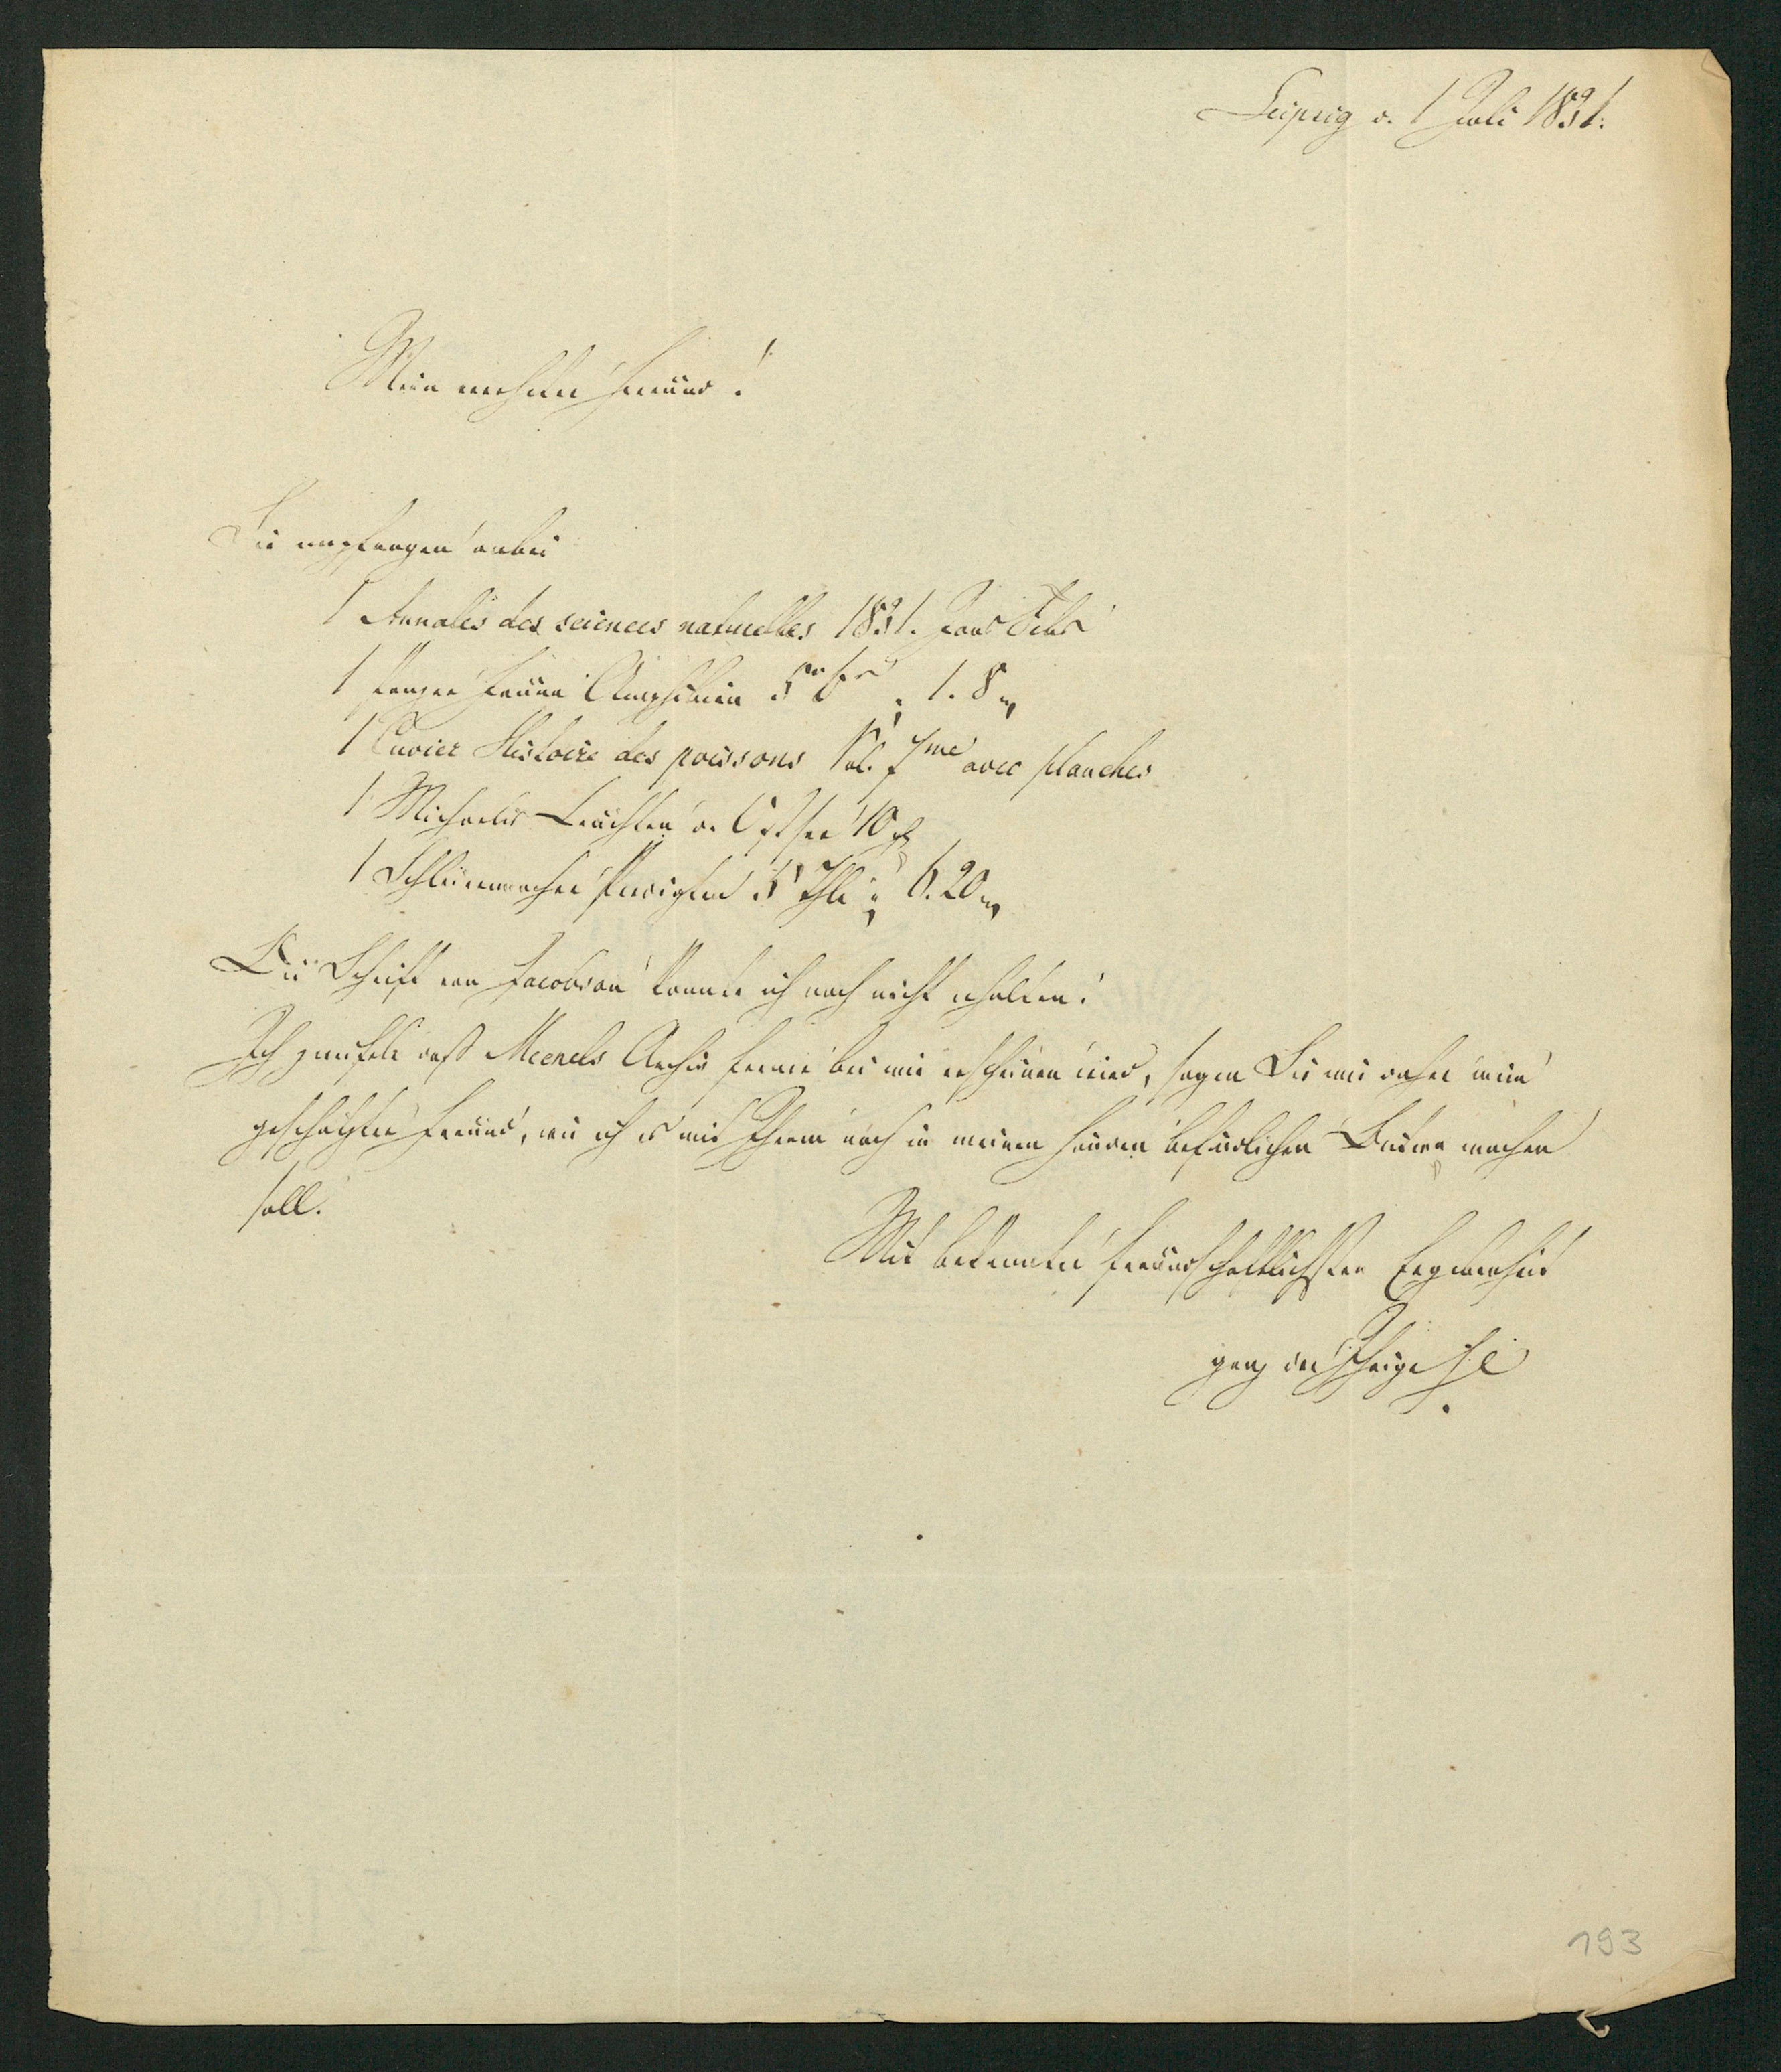 Leipzig d. 1 Juli 1831.
Mein verehrter Freund!
Sie empfangen anbei
1 Annales des sciences naturelles 1831. Janv Febr
1 Fauna Amphibien 5r 6r 1. 8
1 Cuvier Histoire des poissons Vol. 7me avec planches
1 Michaelis Leuchten d. Ostsee 10 gl
1 Schleiermacher Predigten 5 Thle 6. 20
Die Schrift von Jacobson konnte ich noch nicht erhalten.
Ich zweifele daß Meckels Archiv ferner bei mir erscheinen wird, sagen Sie mir daher mein
geschätzter Freund, wie ich es mit Ihrem noch in meinen Händen befindlichen machen
soll.
Mit bekannter freundschaftlichster Ergebenheit
ganz der Ihrige
193